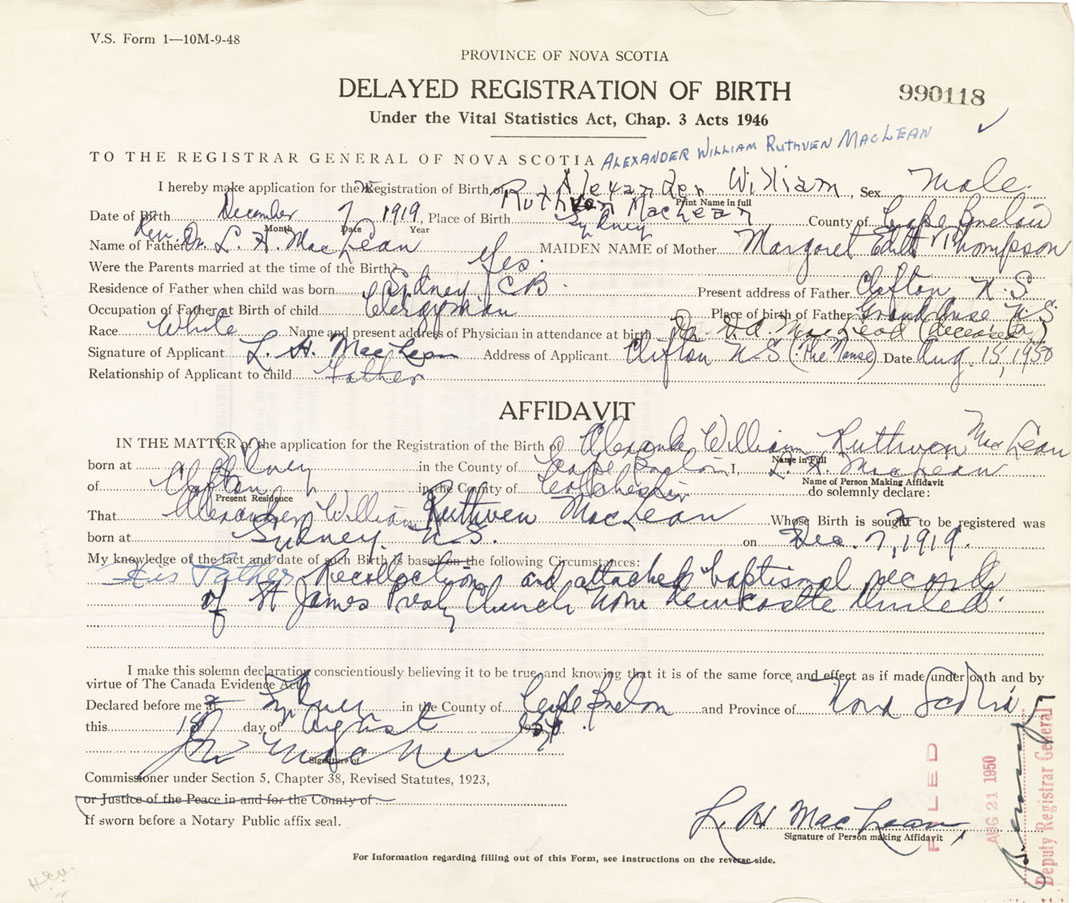 V.S. Form 1—10M-9-48
PROVINCE OF NOVA SCOTIA
DELAYED REGISTRATION OF BIRTH
990118
Under the Vital Statistics Act, Chap. 3 Acts 1946
TO THE REGISTRAR GENERAL OF NOVA SCOTIA ALEXANDER WILLIAM RUTHVEN MACLEAN
I hereby make application for the Registration of Birth of Alexander William Sex Male
Ruthven MacLean Print Name in full
Date of Birth December 7 1919, Place of Birth Sydney County of Cape Breton
Month Date Year
Name of Father Rev. Dr. L. H. MacLean MAIDEN NAME of Mother Margaret Edith Thompson
Were the Parents married at the time of the Birth? Yes.
Residence of Father when child was born Sydney, CB. Present address of Father Clifton N.S
Occupation of Father at Birth of child Clergyman Place of birth of Father N.S
Race White Name and present address of Physician in attendance at birth Dr. MacLeod (deceased)
Signature of Applicant L. H. MacLean Address of Applicant Clifton N S (The Manse) Date Aug. 18, 1950
Relationship of Applicant to child Father
AFFIDAVIT
IN THE MATTER of the application for the Registration of the Birth of Alexander William Ruthven MacLean
Name in Full
born at Sydney in the County of Cape Breton I, L. H. MacLean
Name of Person Making Affidavit
of Clifton in the County of Colchester do solemnly declare:
Present Residence
That Alexander William Ruthven MacLean Whose Birth is sought to be registered was
born at Sydney. N.S. on Dec. 7, 1919.
My knowledge of the fact and date of such Birth is based on the following Circumstances:
His Father Recollection and attached baptismal records
of St James Presby Church now Newcastle United.
I make this solemn declaration conscientiously believing it to be true and knowing that it is of the same force and effect as if made under oath and by
virtue of The Canada Evidence Act.
Declared before me at Sydney in the County of Cape Breton and Province of Nova Scotia
this 18 day of August 1950
Signature of
Commissioner under Section 5, Chapter 38, Revised Statutes, 1923,
or Justice of the Peace in and for the County of
If sworn before a Notary Public affix seal.
L. H MacLean,
Signature of Person making Affidavit
FILED
AUG 21 1950
Deputy Registrar General
For Information regarding filling out of this Form, see instructions on the reverse side.